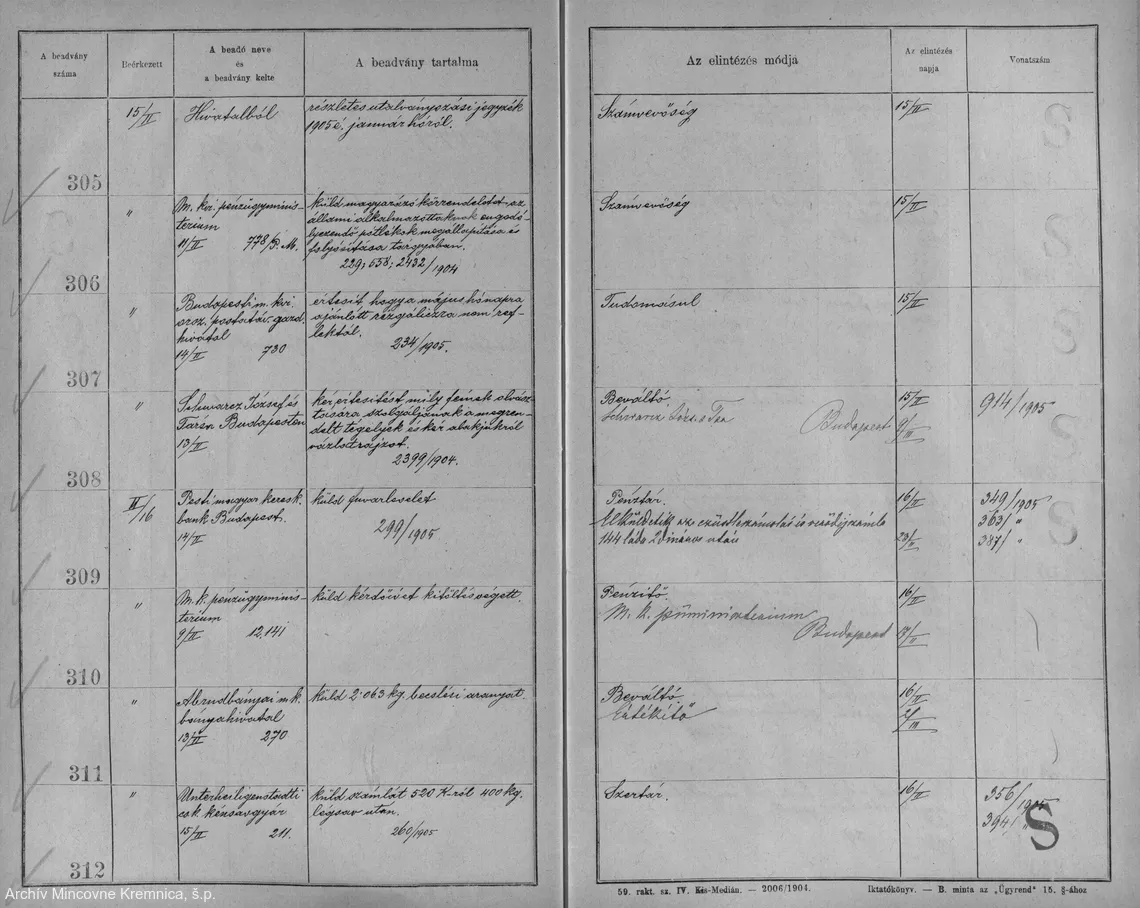 A beadvány
száma
Beérkezett
A beadó neve
és
a beadvány kelte
A beadvány tartalma
Az elintézés módja
Az elintézés
napja
Vonatszám
305
15/II
Hivatalból
részletes utalványozási jegyzék
1905 é. január hóról.
Számvevőség
15/II
306
"
M. kir. pénzügyminis-
terium
11/II 778/P.M.
küld magyarázó körrendeletet az
állami alkalmazottaknak engedé-
lyezendő pótlékok megállapítása és
folyósítása tárgyában.
229; 558; 2432/1904
Számvevőség
15/II
307
"
Budapesti m. kir.
orsz. postatáv. gazd.
hivatal
14/II 730
értesít, hogy a május hónapra
ajánlott rézgáliczra nem ref-
lektál.
234/1905.
Tudomásul
15/II
308
"
Schwarcz József és
Társa Budapesten
13/II
kér értesítést mily fémek olvasz-
tására szolgáljanak a megren-
delt tégelyek és kér alakjukról
vázlatrajzot.
2399/1904.
Beváltó
Budapest
15/II
914/1905
309
II/16
Pesti magyar keresk.
bank Budapest.
14/II
küld fuvarlevelet
299/1905
Pénztár.
Elküldetik az ezüstleszámolás és verődíjszámla
144 láda 2 dináros után
16/II
23/II
349/1905
363/ "
387/ "
310
"
M. k. pénzügyminis-
terium
9/II 12,141
küld kérdőívet kitöltés végett.
Pénzítő.
M. k. püministerium
Budapest
16/II
17/II
311
"
Abrudbányai m. k.
bányahivatal
13/II 270
küld 2·063 kg. becslési aranyat.
Beváltó
Értékítő
16/II
2/III
312
"
Unterheiligenstadti
csk. kénsavgyár
15/II 211.
küld számlát 520 K-ról 400 kg.
légsav után.
260/1905
Szertár.
16/II
356/1905
394/ "
S
59. rakt. sz. IV. Kis-Medián. — 2006/1904.
Iktatókönyv. — B. minta az „Ügyrend" 15. §-ához
Archív Mincovne Kremnica, š.p.